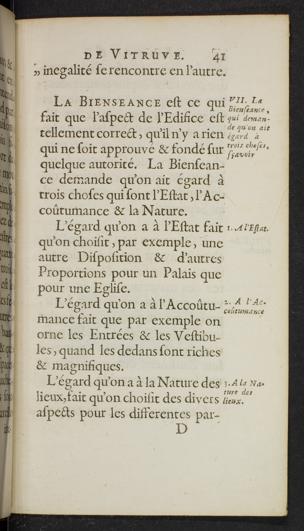 DE VITRUVE. 41
„ inegalité se rencontre en l'autre.
LA BIENSEANCE est ce qui
fait que l'aspect de l'Edifice est
tellement correct, qu'il n'y a rien
qui ne soit approuvé & fondé sur
quelque autorité. La Bienséan-
ce demande qu'on ait égard à
trois choses qui sont l'Estat, l'Ac-
coûtumance & la Nature.
VII. La
Bienseance,
qui deman-
de qu'on ait
égard à
trois choses,
sçavoir
L'égard qu'on a à l'Estat fait
qu'on choisit, par exemple, une
autre Disposition & d'autres
Proportions pour un Palais que
pour une Eglise.
1. A l'Estat.
L'égard qu'on a à l'Accoûtu-
mance fait que par exemple on
orne les Entrées & les Vestibu-
les, quand les dedans sont riches
& magnifiques.
2. A l'Ac-
coûtumance
L'égard qu'on a à la Nature des
lieux, fait qu'on choisit des divers
aspects pour les differentes par-
3. A la Na-
ture des
lieux.
D